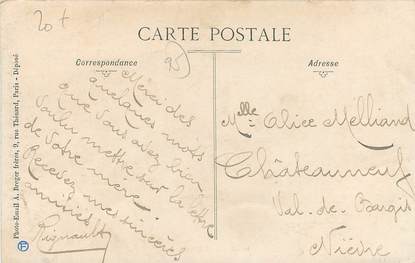 20 t
CARTE POSTALE
Correspondance
Adresse
25
Merci des
quelques mots
que vous avez bien
voulu mettre sur la lettre
de votre mère.
Recevez mes sincères
amitiés
Rignault
Melle Alice Melliand
Châteauneuf
Val-de-Bargis
Nièvre
Photo-Email A. Breger frères, 9, rue Thénard, Paris - Déposé